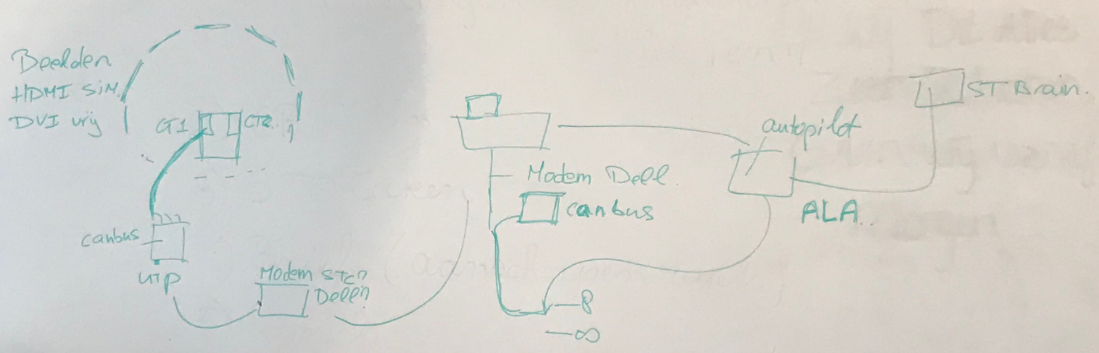 Beelden
HDMI SIM.
DVI vrij
CT1
CT2
canbus
UTP
Modem STC?
Dell?
Modem Dell.
canbus
autopilot
ALA..
ST Brain.
8
∞